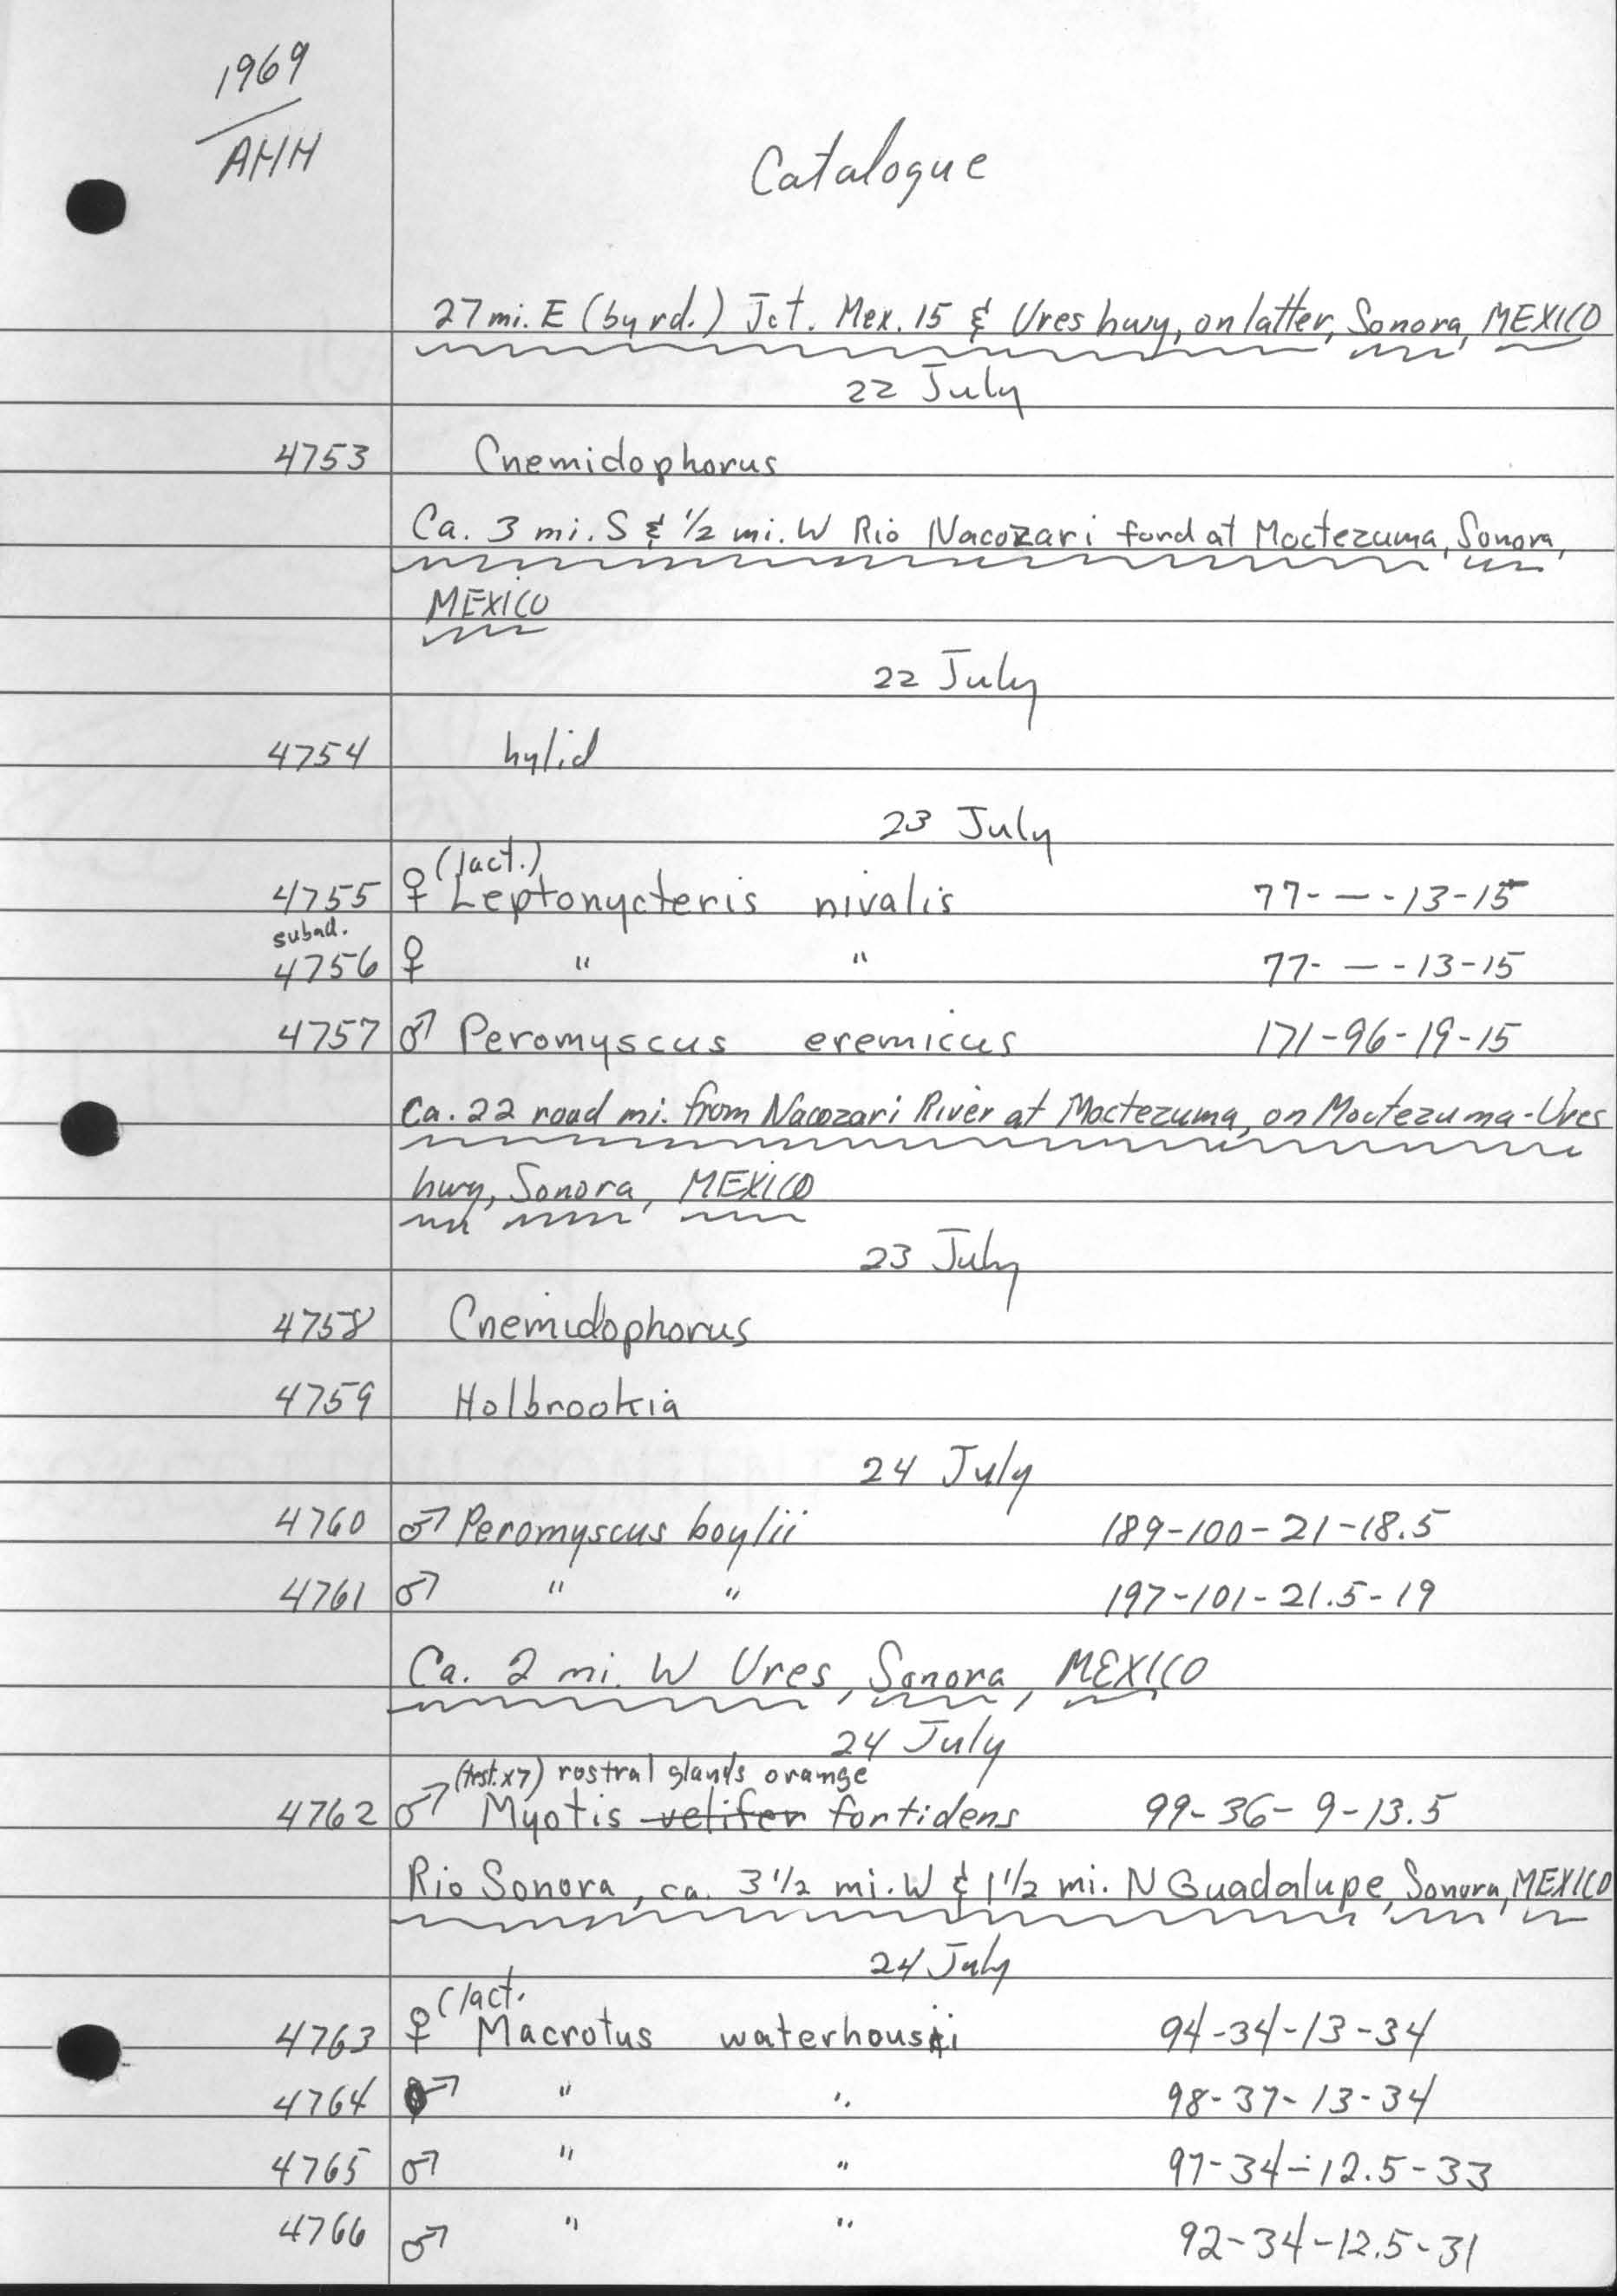 1969
AHH
Catalogue
27 mi. E (by rd.) Jct. Mex. 15 & Ures hwy, on latter, Sonora, MEXICO
22 July
4753 Cnemidophorus
Ca. 3 mi. S & 1/2 mi. W Rio Nacozari ford at Moctezuma, Sonora,
MEXICO
22 July
4754 hylid
23 July
(lact.)
4755 ♀ Leptonycteris nivalis 77- — -13-15
subad.
4756 ♀ " " 77- — -13-15
4757 ♂ Peromyscus eremicus 171-96-19-15
Ca. 22 road mi. from Nacozari River at Moctezuma, on Moctezuma-Ures
hwy, Sonora, MEXICO
23 July
4758 Cnemidophorus
4759 Holbrookia
24 July
4760 ♂ Peromyscus boylii 189-100-21-18.5
4761 ♂ " " 197-101-21.5-19
Ca. 2 mi. W Ures, Sonora, MEXICO
24 July
(test. x7) rostral glands orange
4762 ♂ Myotis velifer fortidens 99-36-9-13.5
Rio Sonora, ca. 3 1/2 mi. W & 1 1/2 mi. N Guadalupe, Sonora, MEXICO
24 July
(lact.
4763 ♀ Macrotus waterhousii 94-34-13-34
4764 ♂ " " 98-37-13-34
4765 ♂ " " 97-34-12.5-33
4766 ♂ " " 92-34-12.5-31